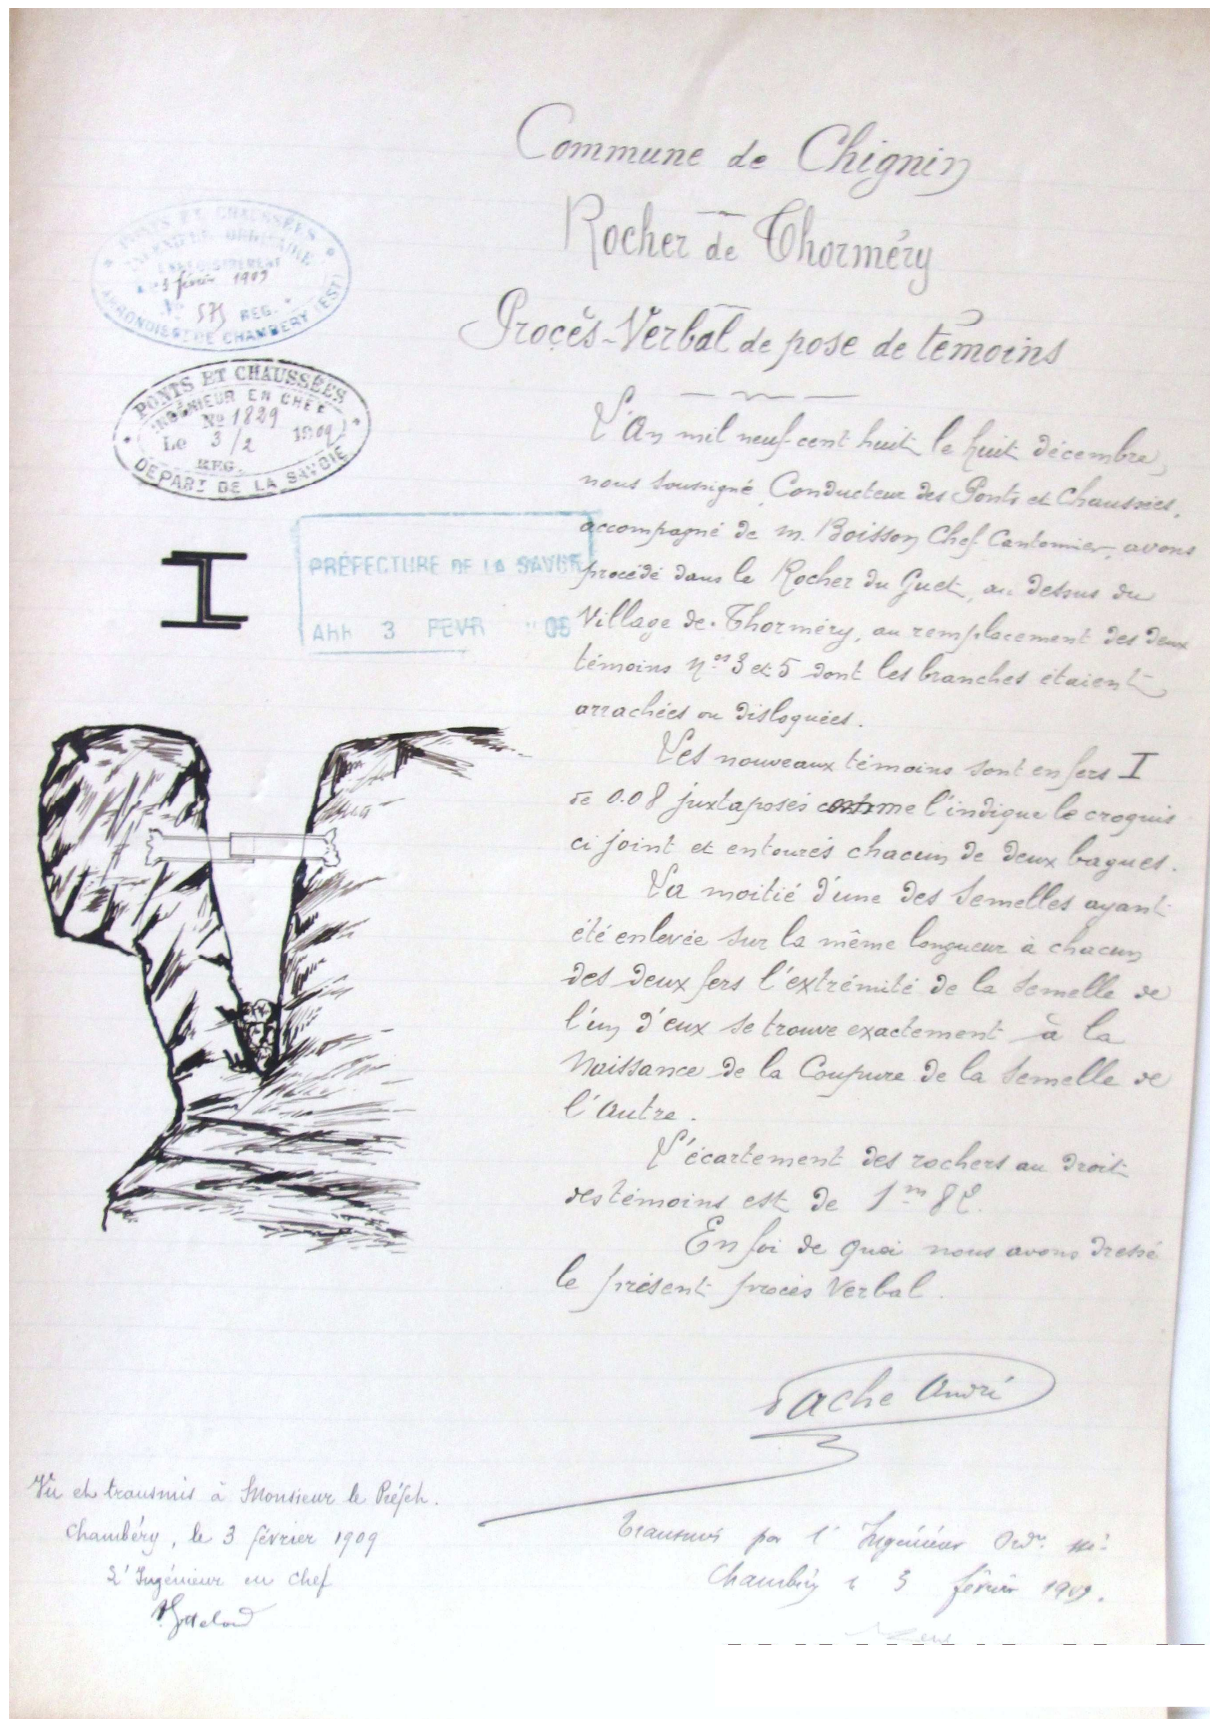 Commune de Chignin
Rocher de Thorméry
Procès-Verbal de pose de témoins
PONTS ET CHAUSSÉES
ORDINAIRE
ENREGISTREMENT
3 février 1909
No 575 REG.
ARRONDISST DE CHAMBERY (EST)
PONTS ET CHAUSSÉES
INGÉNIEUR EN CHEF
No 1829
Le 3/2 1909
REG.
DÉPART DE LA SAVOIE
PRÉFECTURE DE LA SAVOIE
3 FEVR
I
L'An mil neuf-cent huit le huit décembre,
nous soussigné, Conducteur des Ponts et Chaussées,
accompagné de M. Boisson Chef Cantonnier, avons
procédé dans le Rocher du Guet, au dessus du
Village de Thorméry, au remplacement des deux
témoins Nos 3 et 5 dont les branches étaient
arrachées ou disloquées.
Les nouveaux témoins sont en fers I
de 0.08 juxtaposés comme l'indique le croquis
ci joint et entourés chacun de deux bagues.
La moitié d'une des semelles ayant
été enlevée sur la même longueur à chacun
des deux fers l'extrémité de la semelle de
l'un d'eux se trouve exactement à la
Naissance de la Coupure de la semelle de
l'Autre.
L'écartement des rochers au droit
des témoins est de 1m 82.
En foi de quoi nous avons dressé
le présent procès Verbal.
Pache André
Vu et transmis à Monsieur le Préfet.
Chambéry, le 3 février 1909
L'Ingénieur en Chef
Transmis par l'Ingénieur Ordre
Chambéry le 3 février 1909.